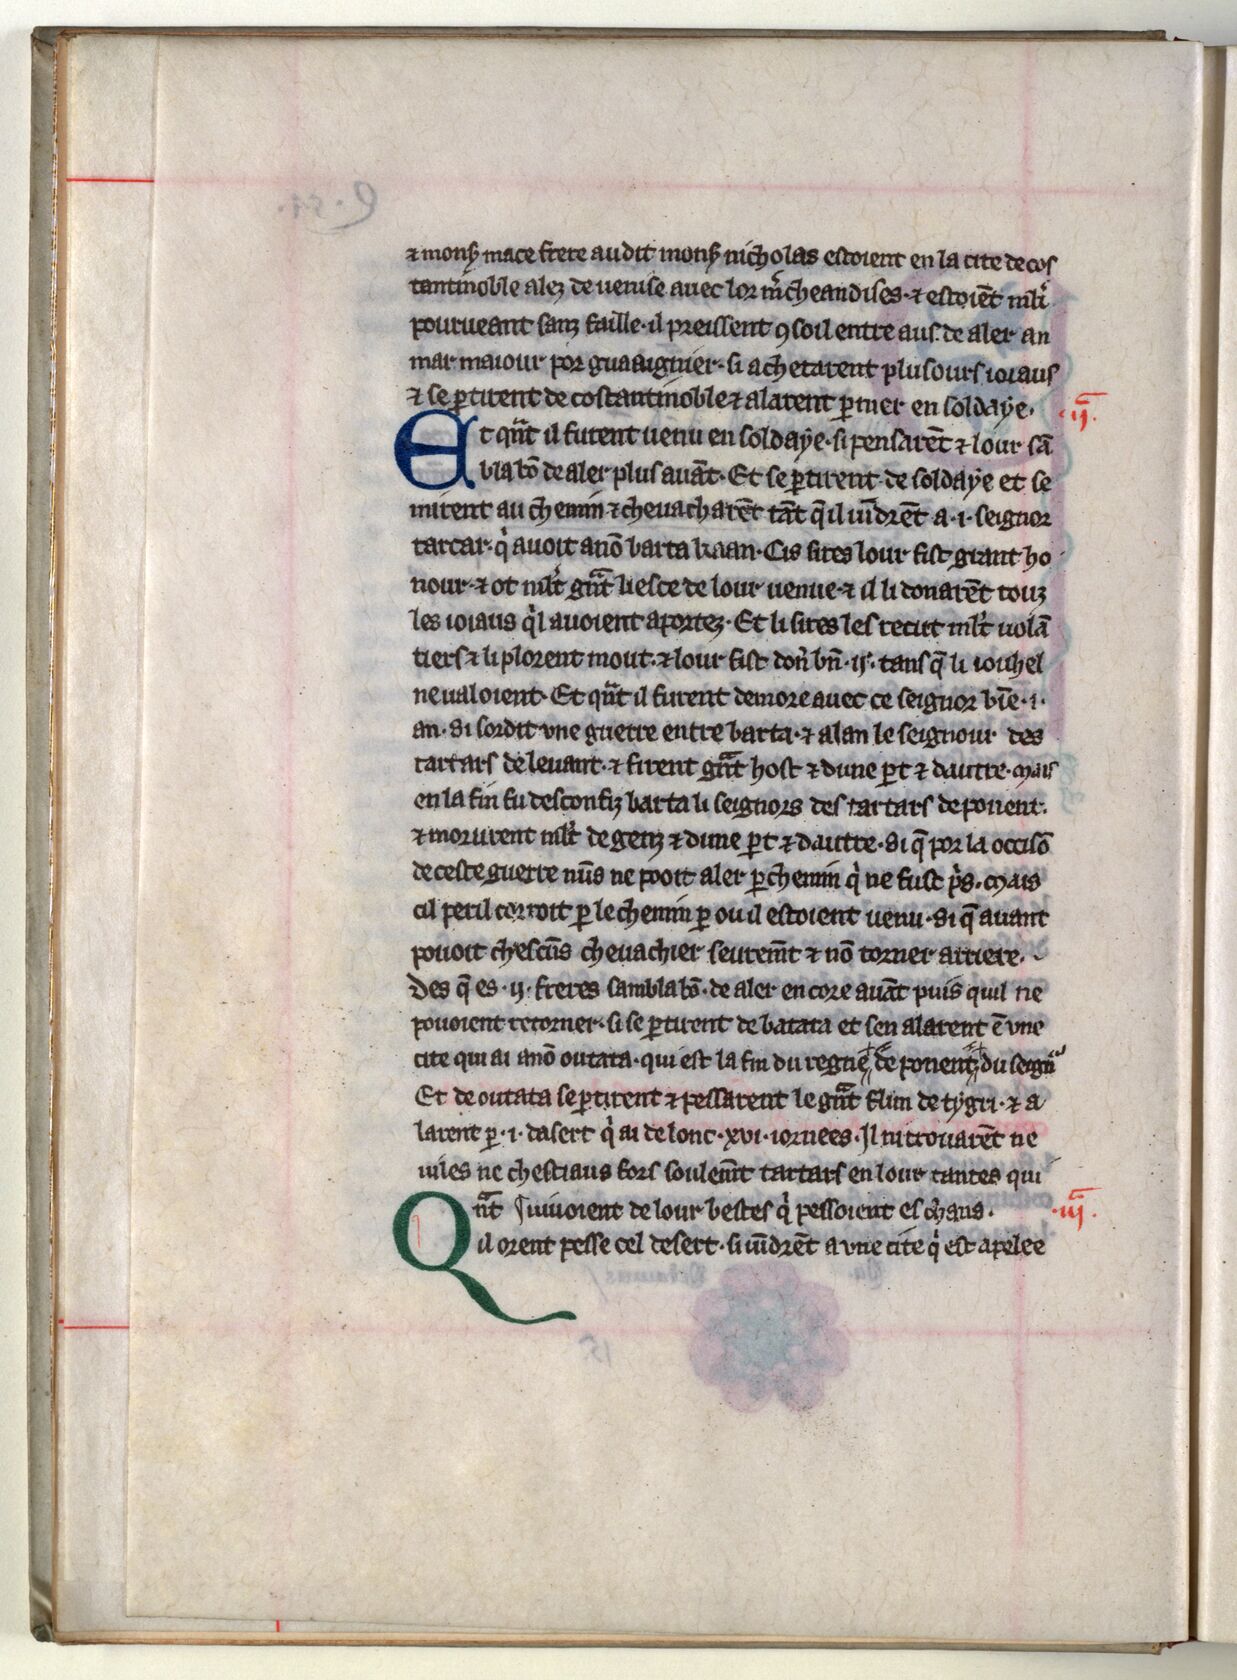 ⁊ monẜ mace frere audit monẜ nicholas estoient en la cite de cos
tantinoble alez de uenise auec lor m̃cheandises· ⁊ estoiẽt mlt̃
pourueant sanz faille· il preissent ꝯsoil entre aus· de aler an
mar maiour por guaaignier· si achetarent plusours ioiaus
⁊ se ꝑtirent de costantinoble ⁊ alarent ꝑ mer en soldaÿe·
·ıȷ̃·
Et qñt il furent uenu en soldaÿe· si pensarẽt ⁊ lour sã
bla bõ de aler plus auãt· Et se ꝑtirent de soldaÿe et se
mirent au chemin ⁊ cheuacharẽt tãt q̃ il uĩdrẽt a ·i· seignor
tartar· q̇ auoit a nõ barta kaan· Cis sires lour fist grant ho
nour· ⁊ ot mlt̃ gñt liesce de lour uenue· ⁊ il li donarẽt touz
les ioiaus q̇l auoient aportez· Et li sires les recut mlt̃ uolã
tiers ⁊ li plorent mout· ⁊ lour fist don̄ bñ ·ij· tans q̃ li iouhel
ne ualoient· Et qñt il furent demore auec ce seignor bĩe ·i·
an· si sordit vne guerre entre barta· ⁊ alan le seignour des
tartars de leuant· ⁊ firent gñt host ⁊ dune ꝑt ⁊ dautre· mais
en la fin fu desconfiz barta li seignors des tartars de ponent·
⁊ morurent mlt̃ de genz ⁊ dune ꝑt ⁊ dautre· si q̃ por la occisõ
de ceste guerre nũs ne pooit aler ꝑ chemin q̇ ne fust p̃s· mais
cil peril corroit ꝑ le chemin ꝑ ou il estoient uenu· si q̃ auant
pouoit chescũs cheuachier seurem̃t ⁊ nõ torner arriere·
Des q̃ es ·ij· freres sambla bõ· de aler encore auãt puis quil ne
pouoient retorner· si se ꝑtirent de batata et sen alarent ẽ vne
cite qui ai a nõ outata· qui est la fin du regne de ponent du seign̄
Et de outata se ꝑtirent ⁊ pessarent le gñt flun de tygri· ⁊ a
larent ꝑ ·i· dasert q̇ ai de lonc ·xvi· iornees· Il ni trouarẽt ne
uiles ne chestiaus fors soulem̃t tartars en lour tantes qui
Qñt ¶uiuoient de lour bestes q̇ pessoient es ch̃ans·
·ııȷ̃·
il orent pesse cel desert· si uĩdrẽt a vne cite q̇ est apelee